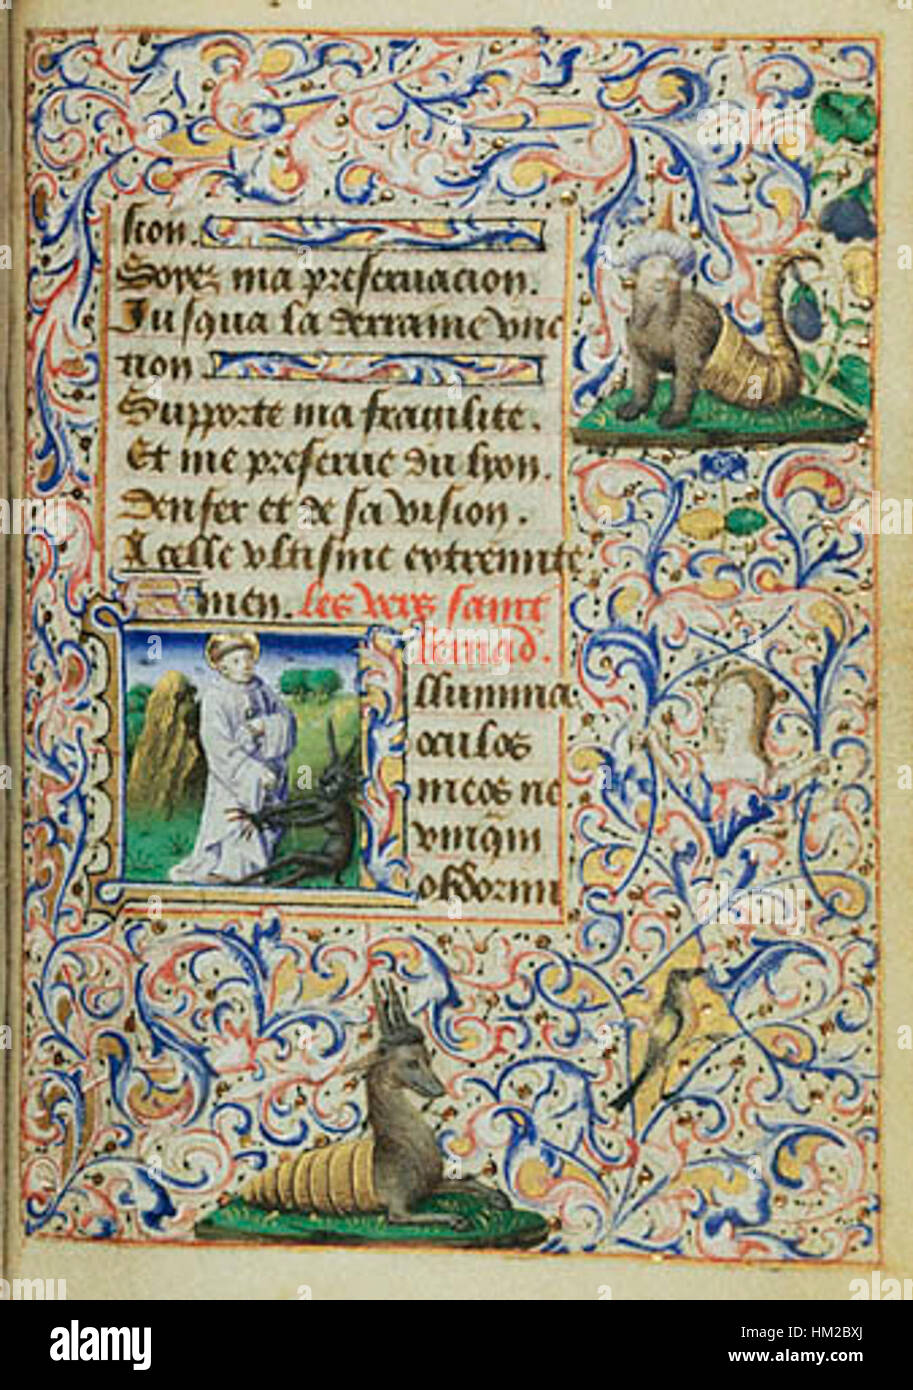 sion.
Soyez ma preseruacion.
Jusqua la derraine vnc
tion
Supporte ma fragilite.
Et me preserue du lyon.
denfer et de sa vision.
A celle vltisme extremite
Amen. les vers saint
bernad.
Illumina
oculos
meos ne
vmq̃m
obdormi
alamy
alamy stock photo
HM2BXJ
www.alamy.com